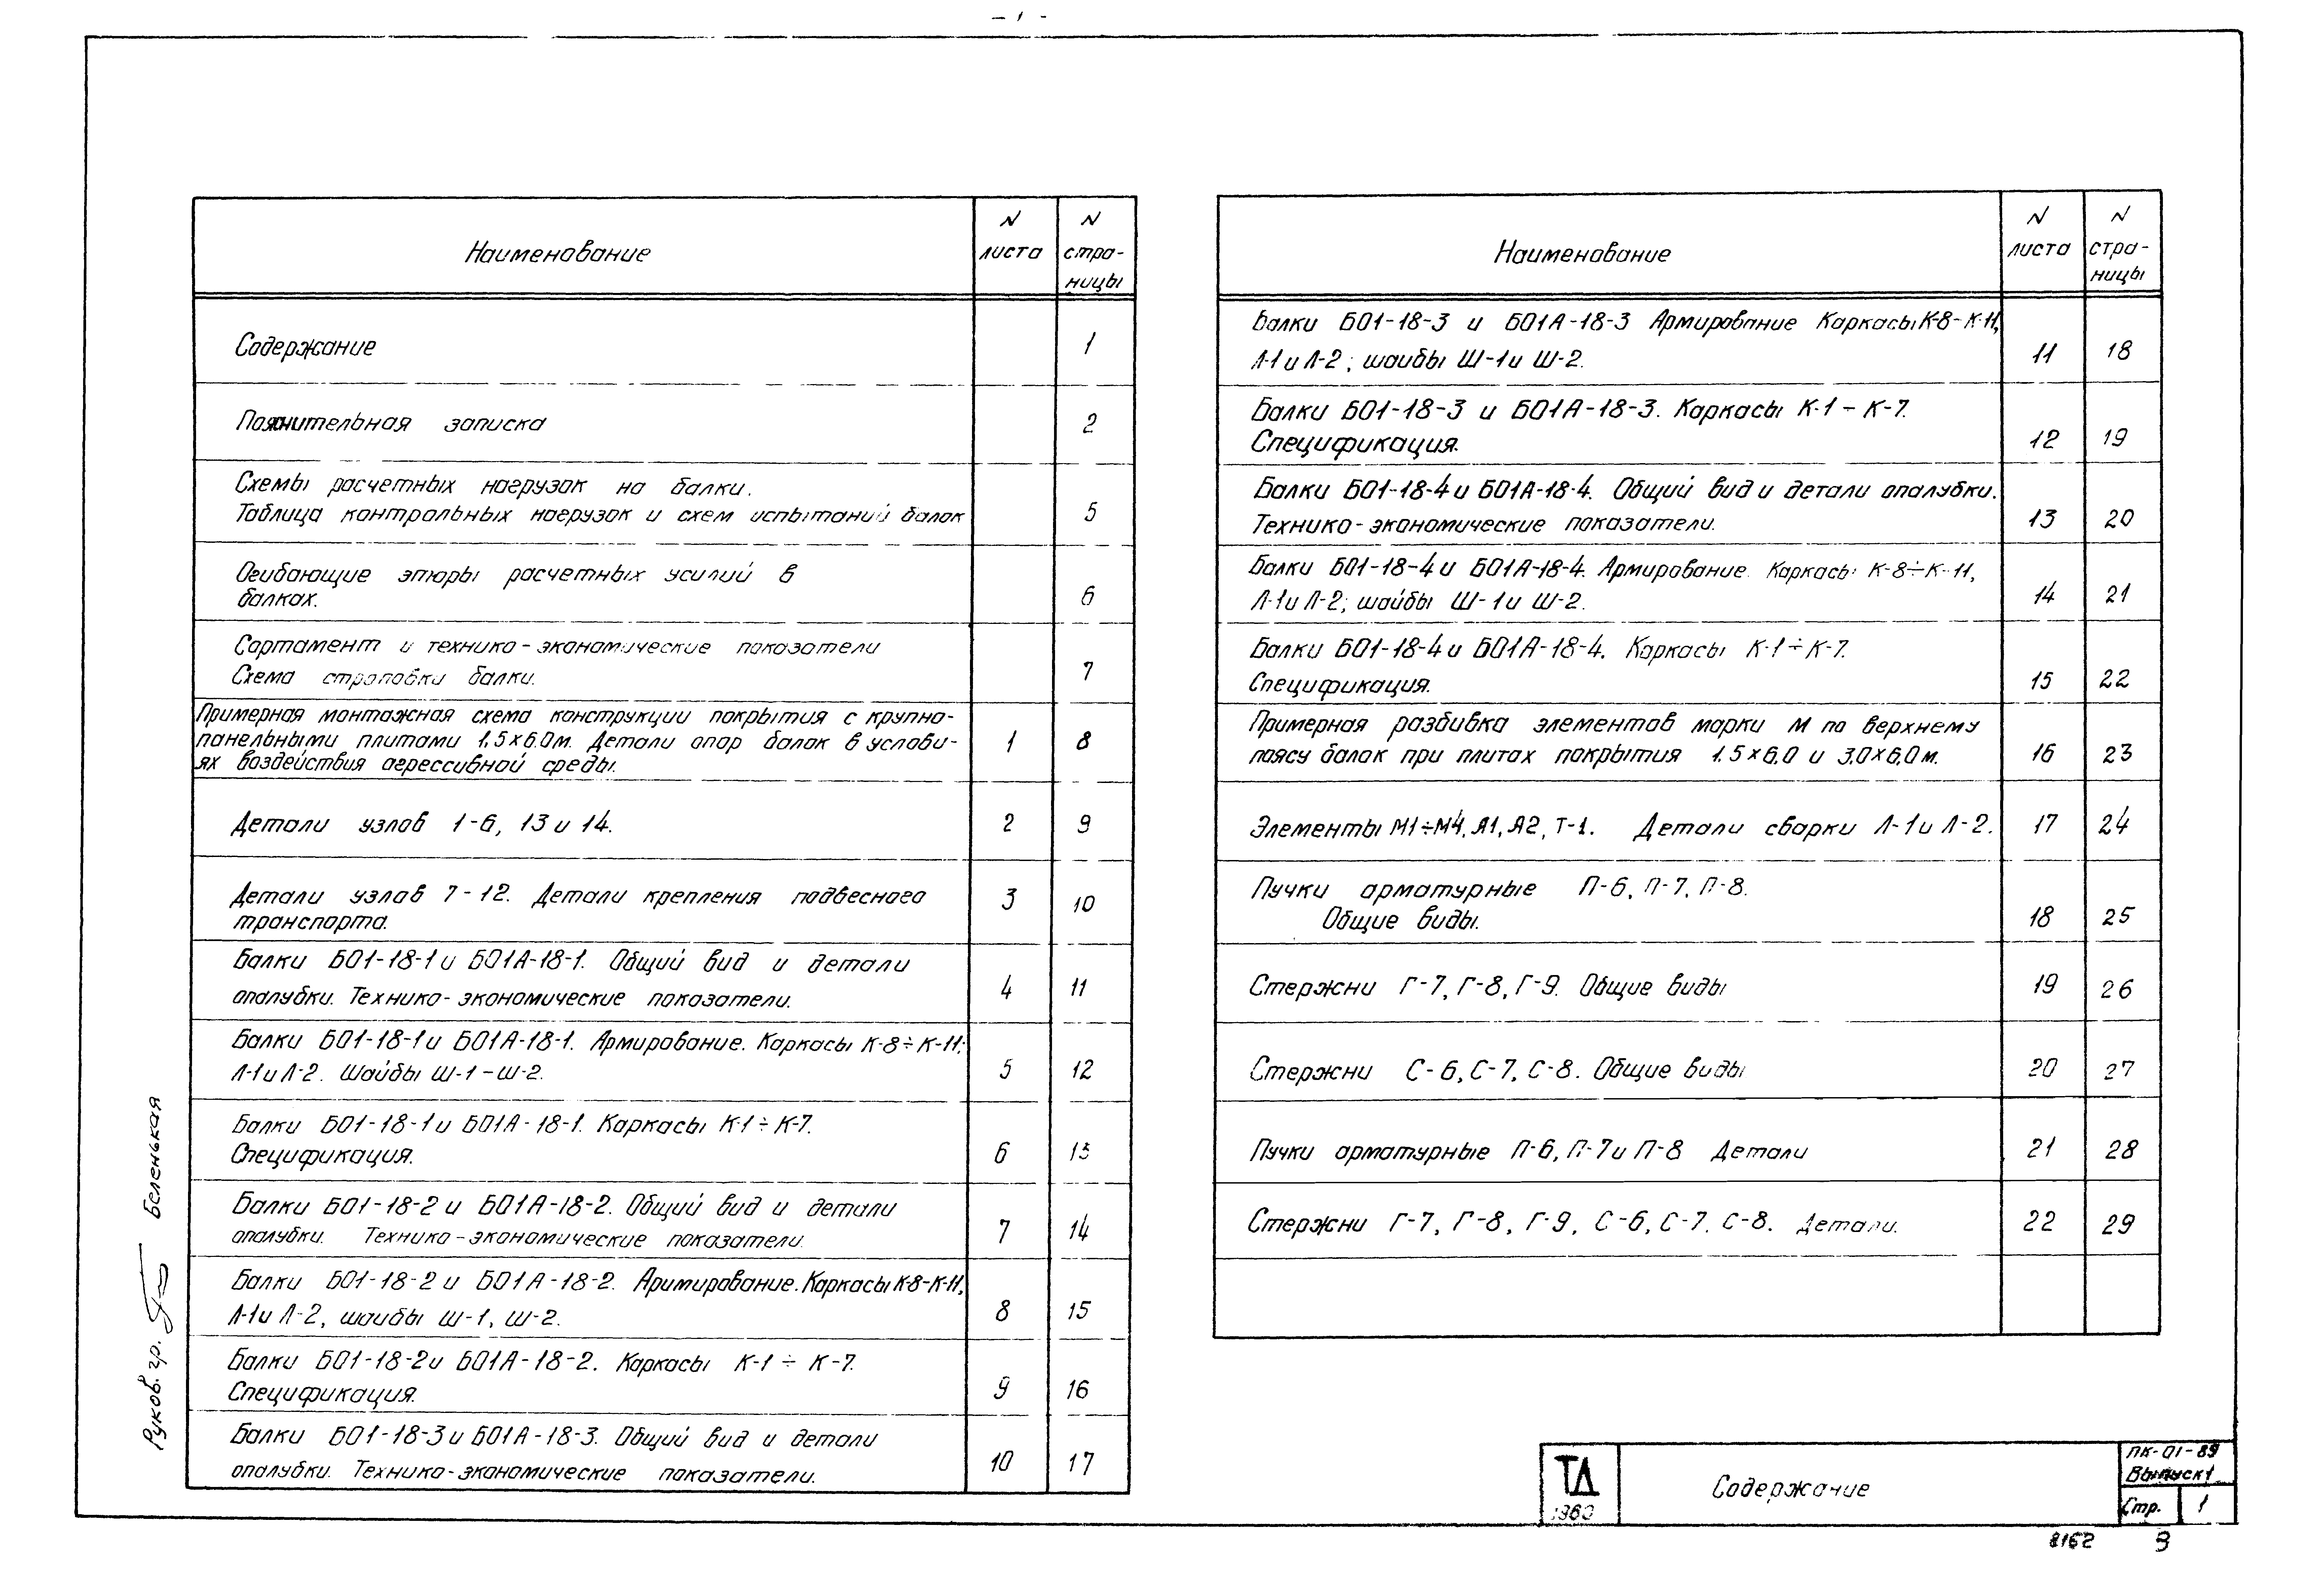 - 1 -
Наименование
N листа
N стра-
ницы
Содержание 1
Пояснительная записка 2
Схемы расчетных нагрузок на балки.
Таблица контрольных нагрузок и схем испытаний балок 5
Огибающие эпюры расчетных усилий в
балках. 6
Сортамент и технико-экономические показатели
Схема строповки балки. 7
Примерная монтажная схема конструкции покрытия с крупно-
панельными плитами 1,5×6.0м. Детали опор балок в услови- 1 8
ях воздействия агрессивной среды.
Детали узлов 1-6, 13 и 14. 2 9
Детали узлов 7-12. Детали крепления подвесного 3 10
транспорта.
Балки БО1-18-1 и БО1А-18-1. Общий вид и детали
опалубки. Технико-экономические показатели. 4 11
Балки БО1-18-1 и БО1А-18-1. Армирование. Каркасы К-8÷К-11;
Л-1 и Л-2. Шайбы Ш-1-Ш-2. 5 12
Балки БО1-18-1 и БО1А-18-1. Каркасы К-1÷К-7.
Спецификация. 6 13
Балки БО1-18-2 и БО1А-18-2. Общий вид и детали
опалубки. Технико-экономические показатели. 7 14
Балки БО1-18-2 и БО1А-18-2. Аримирование. Каркасы К-8-К-11,
Л-1 и Л-2, шайбы Ш-1, Ш-2. 8 15
Балки БО1-18-2 и БО1А-18-2. Каркасы К-1÷К-7.
Спецификация. 9 16
Балки БО1-18-3 и БО1А-18-3. Общий вид и детали
опалубки. Технико-экономические показатели. 10 17
Наименование
N листа
N стра-
ницы
Балки БО1-18-3 и БО1А-18-3 Армирование Каркасы К-8-К-11,
Л-1 и Л-2; шайбы Ш-1 и Ш-2. 11 18
Балки БО1-18-3 и БО1А-18-3. Каркасы К-1÷К-7.
Спецификация. 12 19
Балки БО1-18-4 и БО1А-18-4. Общий вид и детали опалубки.
Технико-экономические показатели. 13 20
Балки БО1-18-4 и БО1А-18-4. Армирование. Каркасы К-8÷К-11,
Л-1 и Л-2; шайбы Ш-1 и Ш-2. 14 21
Балки БО1-18-4 и БО1А-18-4. Каркасы К-1÷К-7.
Спецификация. 15 22
Примерная разбивка элементов марки М по верхнему
поясу балок при плитах покрытия 1.5×6,0 и 3,0×6,0м. 16 23
Элементы М1÷М4, Я1, Я2, Т-1. Детали сварки Л-1 и Л-2. 17 24
Пучки арматурные П-6, П-7, П-8.
Общие виды. 18 25
Стержни Г-7, Г-8, Г-9. Общие виды 19 26
Стержни С-6, С-7, С-8. Общие виды 20 27
Пучки арматурные П-6, П-7 и П-8 Детали 21 28
Стержни Г-7, Г-8, Г-9, С-6, С-7, С-8. Детали. 22 29
Руков. гр. Беленькая
ТД
Содержание
ПК-01-89
Выпуск 1
Стр. 1
8162 3